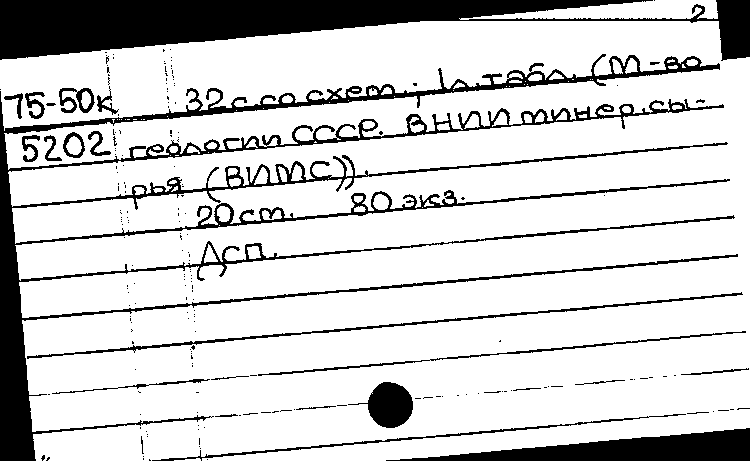 2
75-50к 32 с со схем.; 1 л. табл. (М-во
5202 геологии СССР. ВНИИ минер. сы-
рья (ВИМС)).
20 ст. 80 экз.
Дсп.